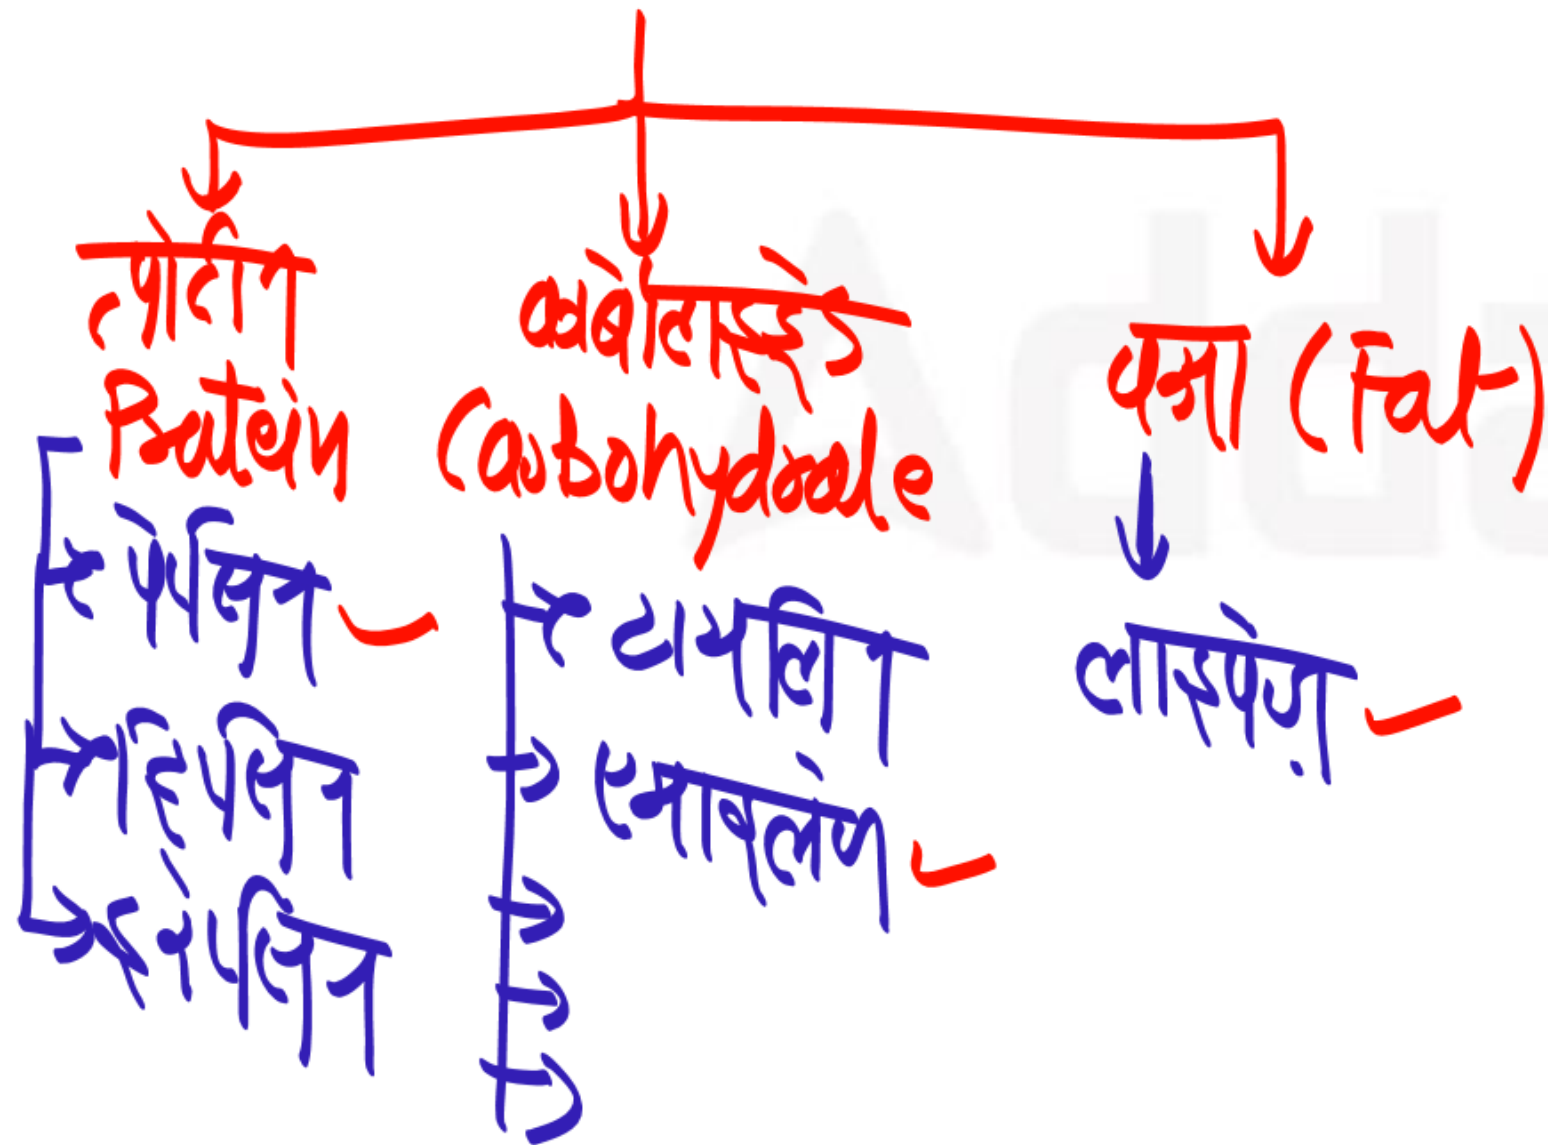 प्रोटीन
Protein
पेप्सिन
ट्रिप्सिन
इरेप्सिन
कार्बोहाइड्रेट
Carbohydrate
टायलिन
एमाइलेज
वसा (Fat)
लाइपेज़